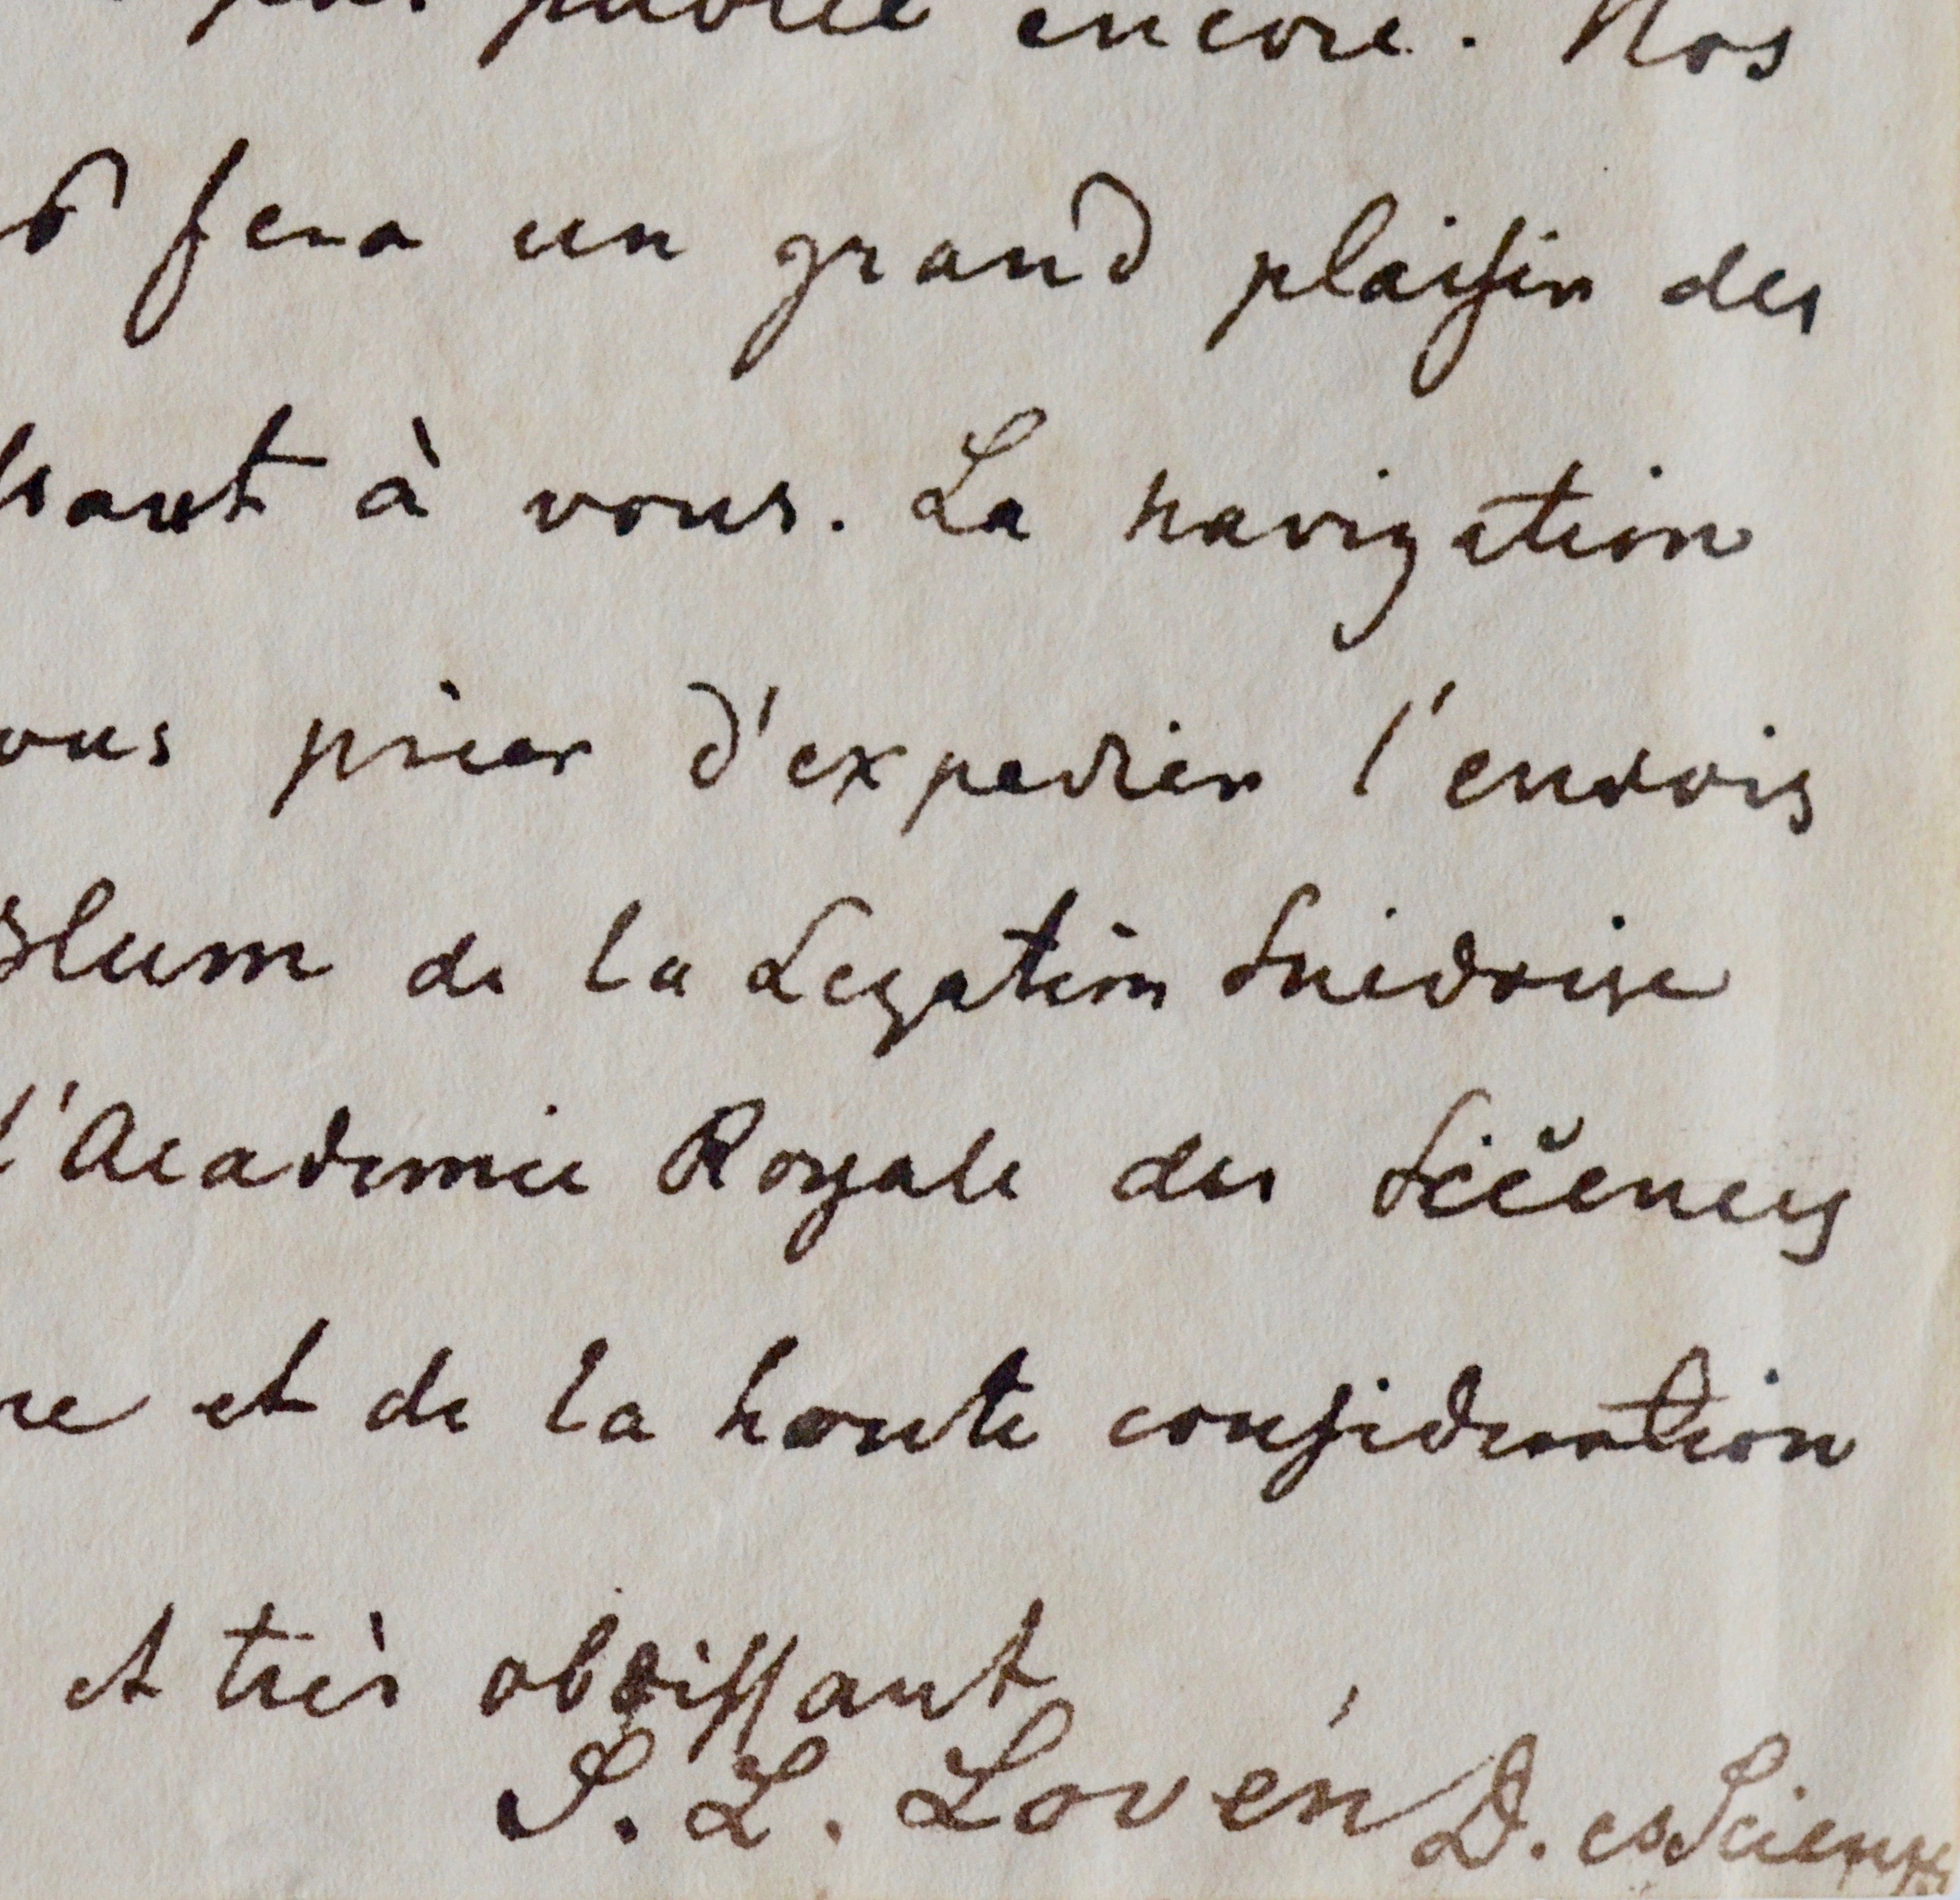 encore. Nos
fera un grand plaisir des
à vous. La navigation
ous prier d'expedier l'envois
lum de la Legation Suedoise
l'Academie Royale des Sciences
re et de la haute consideration
et très obeissant
S. L. Lovén D. es Sciences